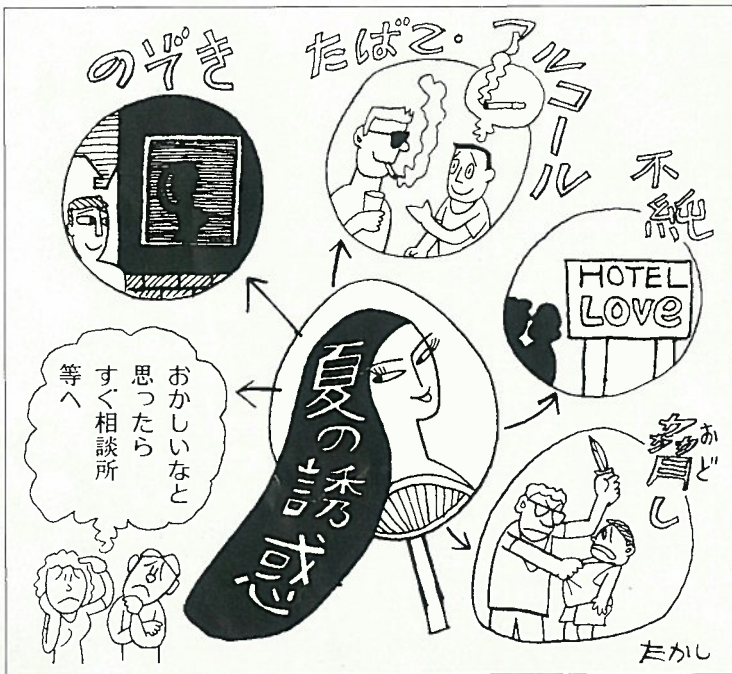 のぞき
たばこ・アルコール
不純
HOTEL
LOVe
夏の誘惑
おかしいなと
思ったら
すぐ相談所
等へ
脅し
おど
たかし